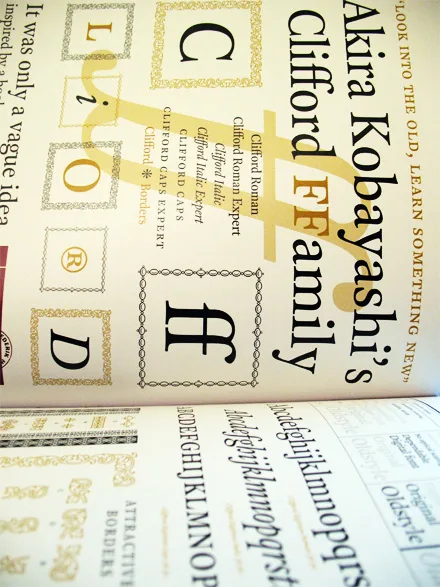 "LOOK INTO THE OLD, LEARN SOMETHING NEW"
Akira Kobayashi's
Clifford FFamily
Clifford Roman
Clifford Roman Expert
Clifford Italic
Clifford Italic Expert
CLIFFORD CAPS
CLIFFORD CAPS EXPERT
Clifford ❊ Borders
C
ff
L
i
O
®
D
It was only a vague idea
inspired by a
Original
Oldstyle
Abcdefghijklmnopqrs
Abcdefghijklmnopqrst
ABCDEFGHIJKLMNOP
ATTRACTIVE
BORDERS